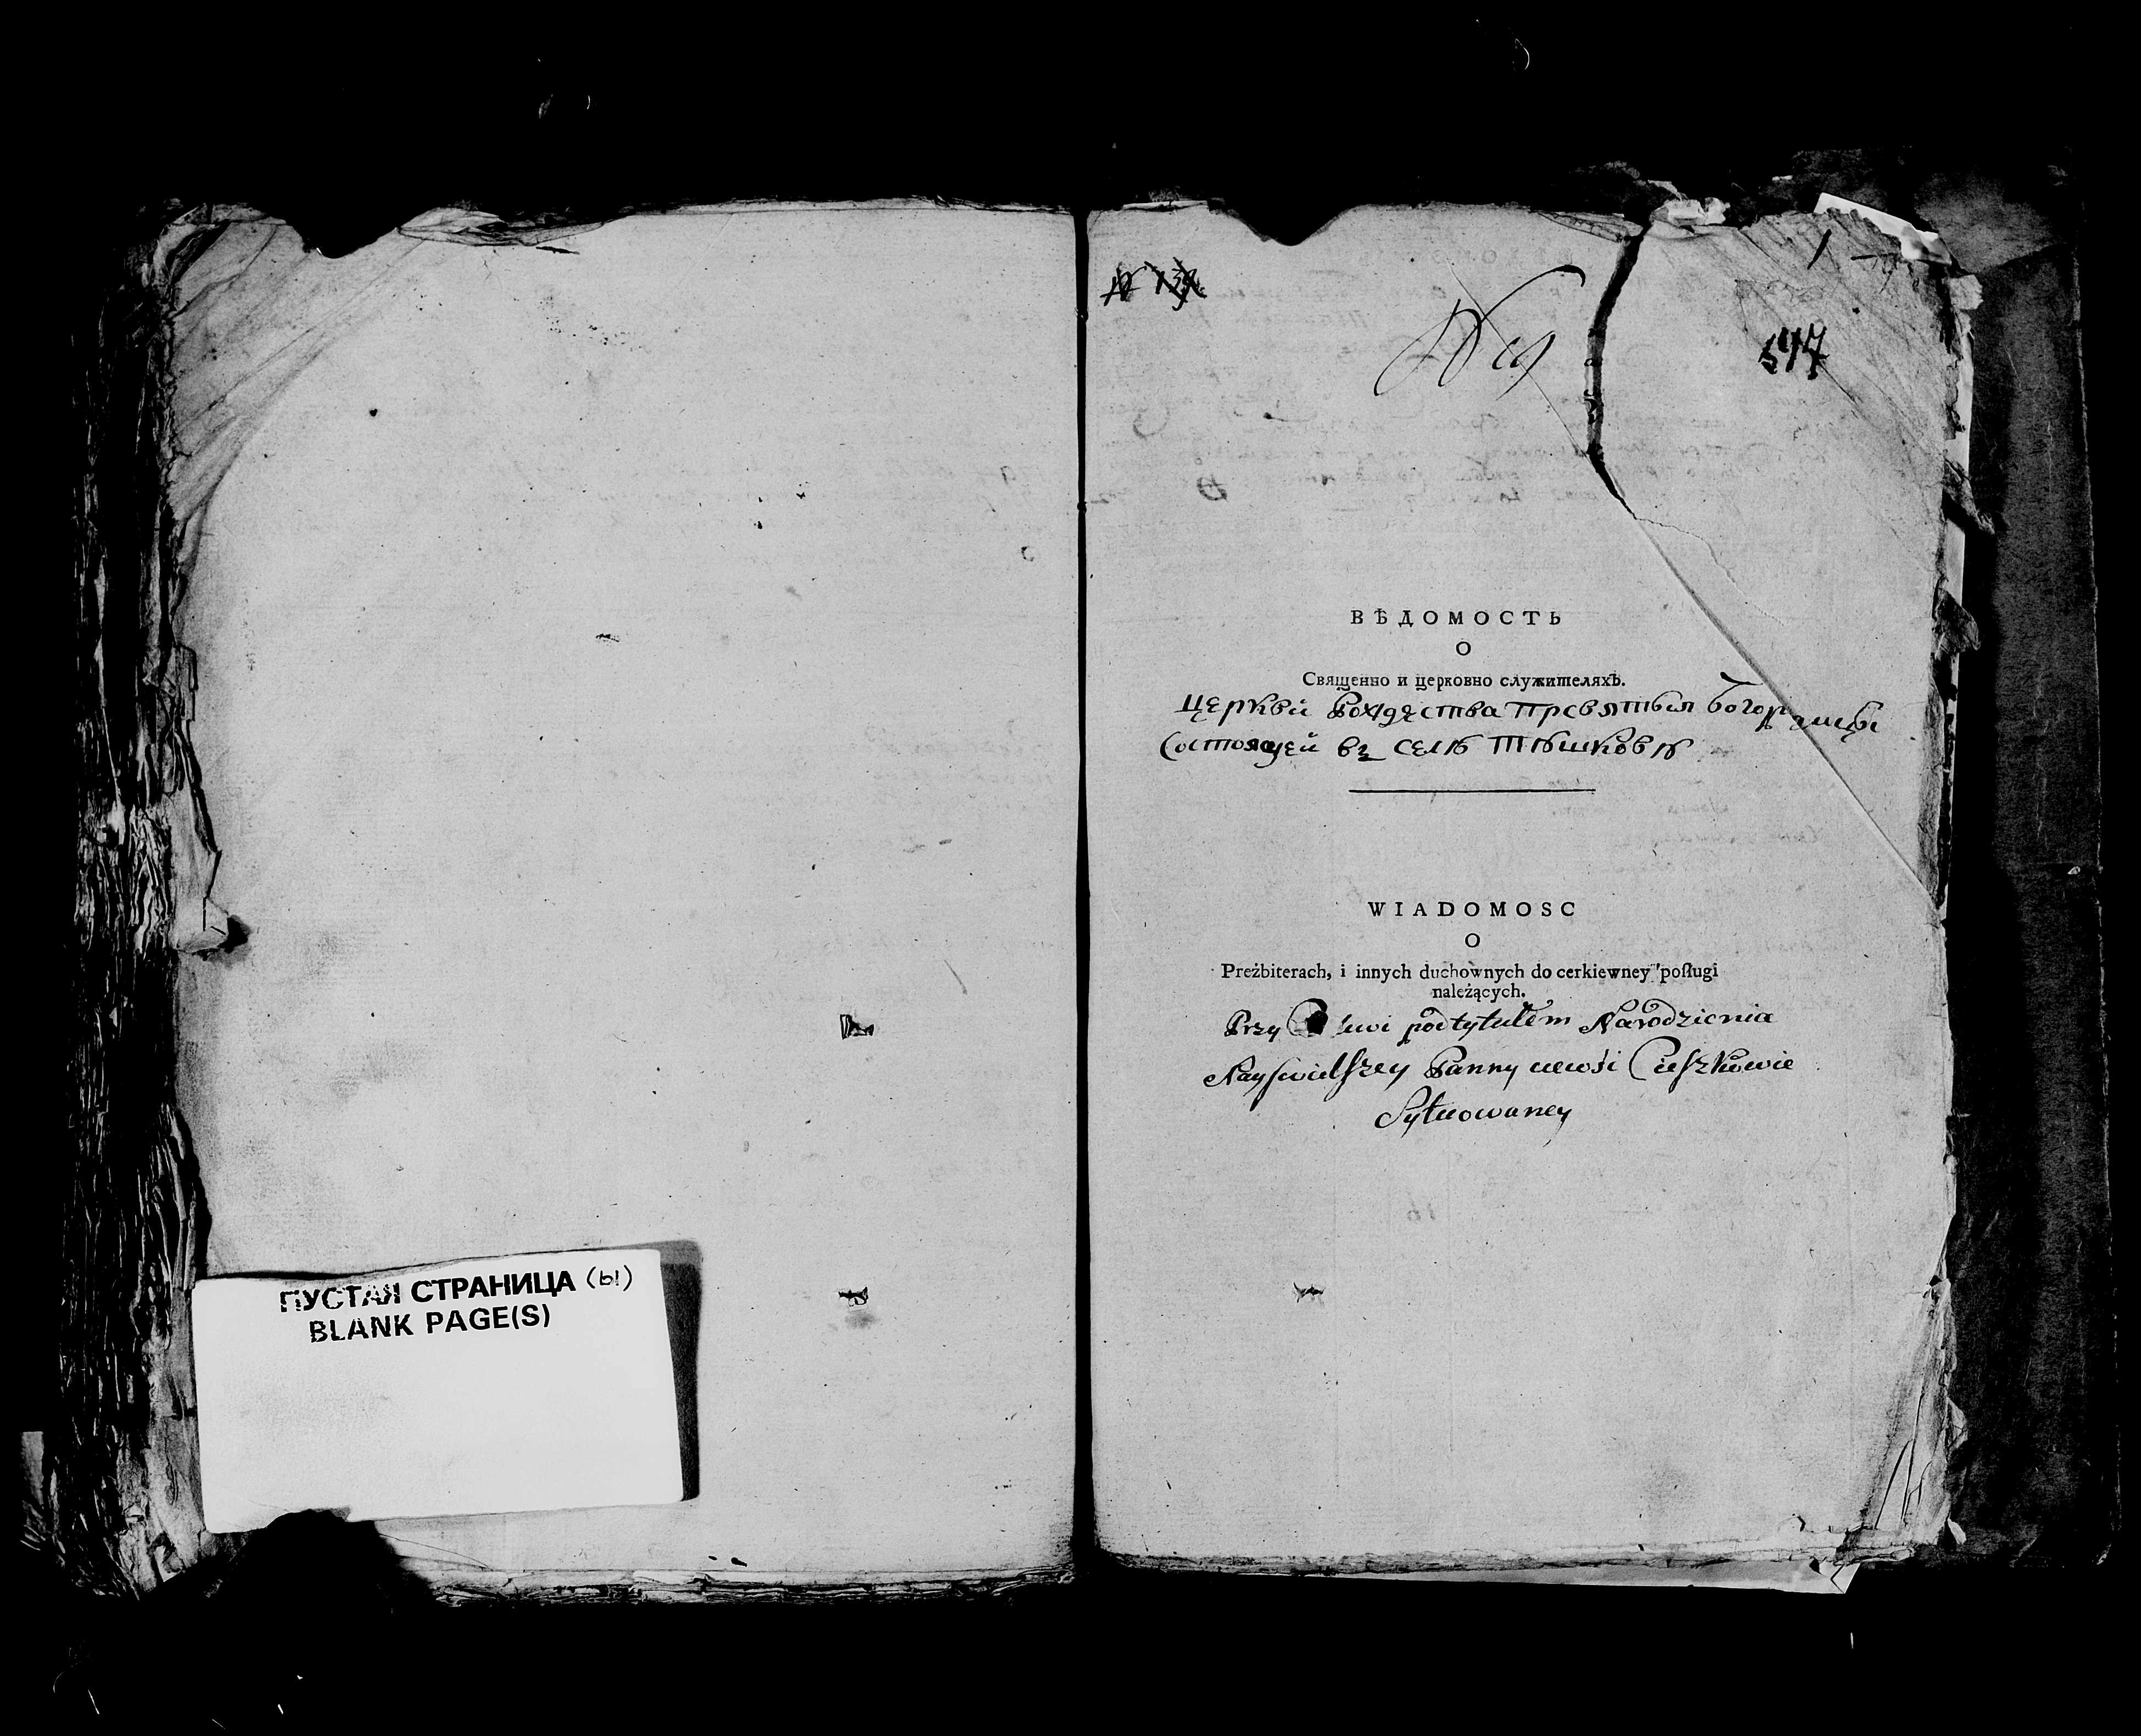 ПУСТАЯ СТРАНИЦА (ы)
BLANK PAGE(S)
1
547
ВѢДОМОСТЬ
О
Священно и церковно служителяхъ.
Церкви Рождества Пресвятыя Богородицы
Состоящей въ селѣ Тѣшковѣ
WIADOMOSC
O
Preżbiterach, i innych duchownych do cerkiewney posługi
należących.
Przy pod tytułem Narodzienia
Nayswietszey Panny wewsi
Sytuowaney